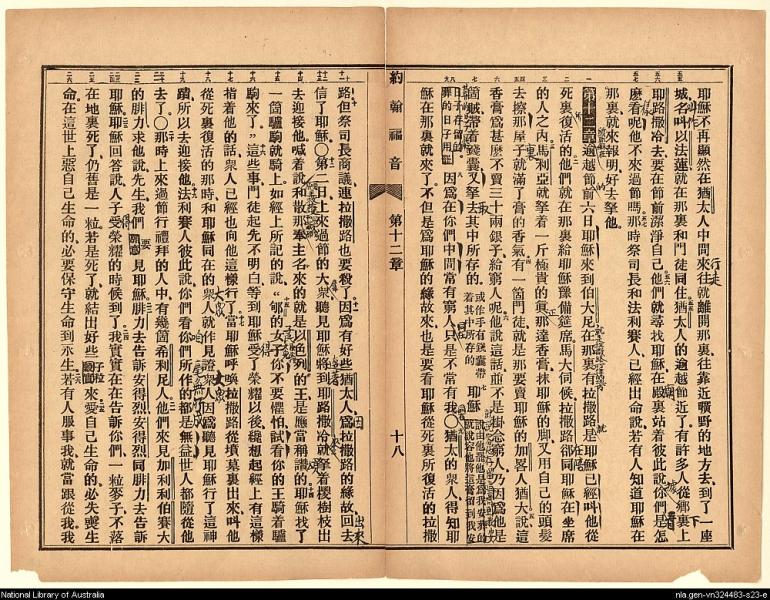 耶穌不再顯然在猶太人中間來往就離開那裏往靠近曠野的地方去到了一座
城名叫以法蓮就在那裏和門徒同住猶太人的逾越節近了有許多人從鄉裏上
耶路撒冷去要在節前潔淨自己他們就尋找耶穌在殿裏站着彼此說你們是怎
麽看呢他不來過節嗎那時祭司長和法利賽人已經出命說若有人知道耶穌在
那裏就來報明好去拏他
第十二章逾越節前六日耶穌來到伯大尼在那裏有拉撒路是耶穌已經叫他從
死裏復活的他們就在那裏給耶穌豫備筵席馬大伺候拉撒路卻同耶穌在坐席
的人之內馬利亞就拏着一斤極貴的眞那達香膏抹耶穌的脚又用自己的頭髮
去擦那屋子就滿了膏的香氣有一箇門徒就是那要賣耶穌的加畧人猶大說這
香膏爲甚麽不賣三十兩銀子給窮人呢他說這話並不是掛念窮人乃因爲他是
箇賊帶着錢囊又拏去其中所存的或作手有錢囊帶着其中所存的耶穌
因爲在你們中間常有窮人只是不常有我〇猶太的衆人得知耶
穌在那裏就來了不但是爲耶穌的緣故來也是要看耶穌從死裏所復活的拉撒
約翰福音 第十二章 十八
路但祭司長商議連拉撒路也要殺了因爲有好些猶太人爲拉撒路的緣故回去
信了耶穌〇第二日上來過節的大衆聽見耶穌將到耶路撒冷就拏着椶樹枝出
去迎接他喊着說和散那奉主名來的就是以色列的王是應當稱讚的耶穌找了
一箇驢駒就騎上如經上所記的說郇的女子你不要懼怕試看你的王騎着驢
駒來了這些事門徒起先不明白等到耶穌受了榮耀以後纔想起經上有這樣
指着他的話衆人已經也向他這樣行了當耶穌呼喚拉撒路從墳墓裏出來叫他
從死裏復活的那時和耶穌同在的衆人就作見證衆人因爲聽見耶穌行了這神
蹟所以去迎接他法利賽人彼此說你們看你們所作的都是無益世人都隨從他
去了〇那時上來過節行禮拜的人中有幾箇希利尼人他們來見加利利伯賽大
的腓力求他說先生我們願意見耶穌腓力去告訴安得烈安得烈同腓力去告訴
耶穌耶穌回答說人子受榮耀的時候到了我實實在在告訴你們一粒麥子不落
在地裏死了仍舊是一粒若是死了就結出好些子粒來愛自己生命的必失喪生
命在這世上惡自己生命的必要保守生命到永生若有人服事我就當跟從我我
National Library of Australia
nla.gen-vn324483-s23-e